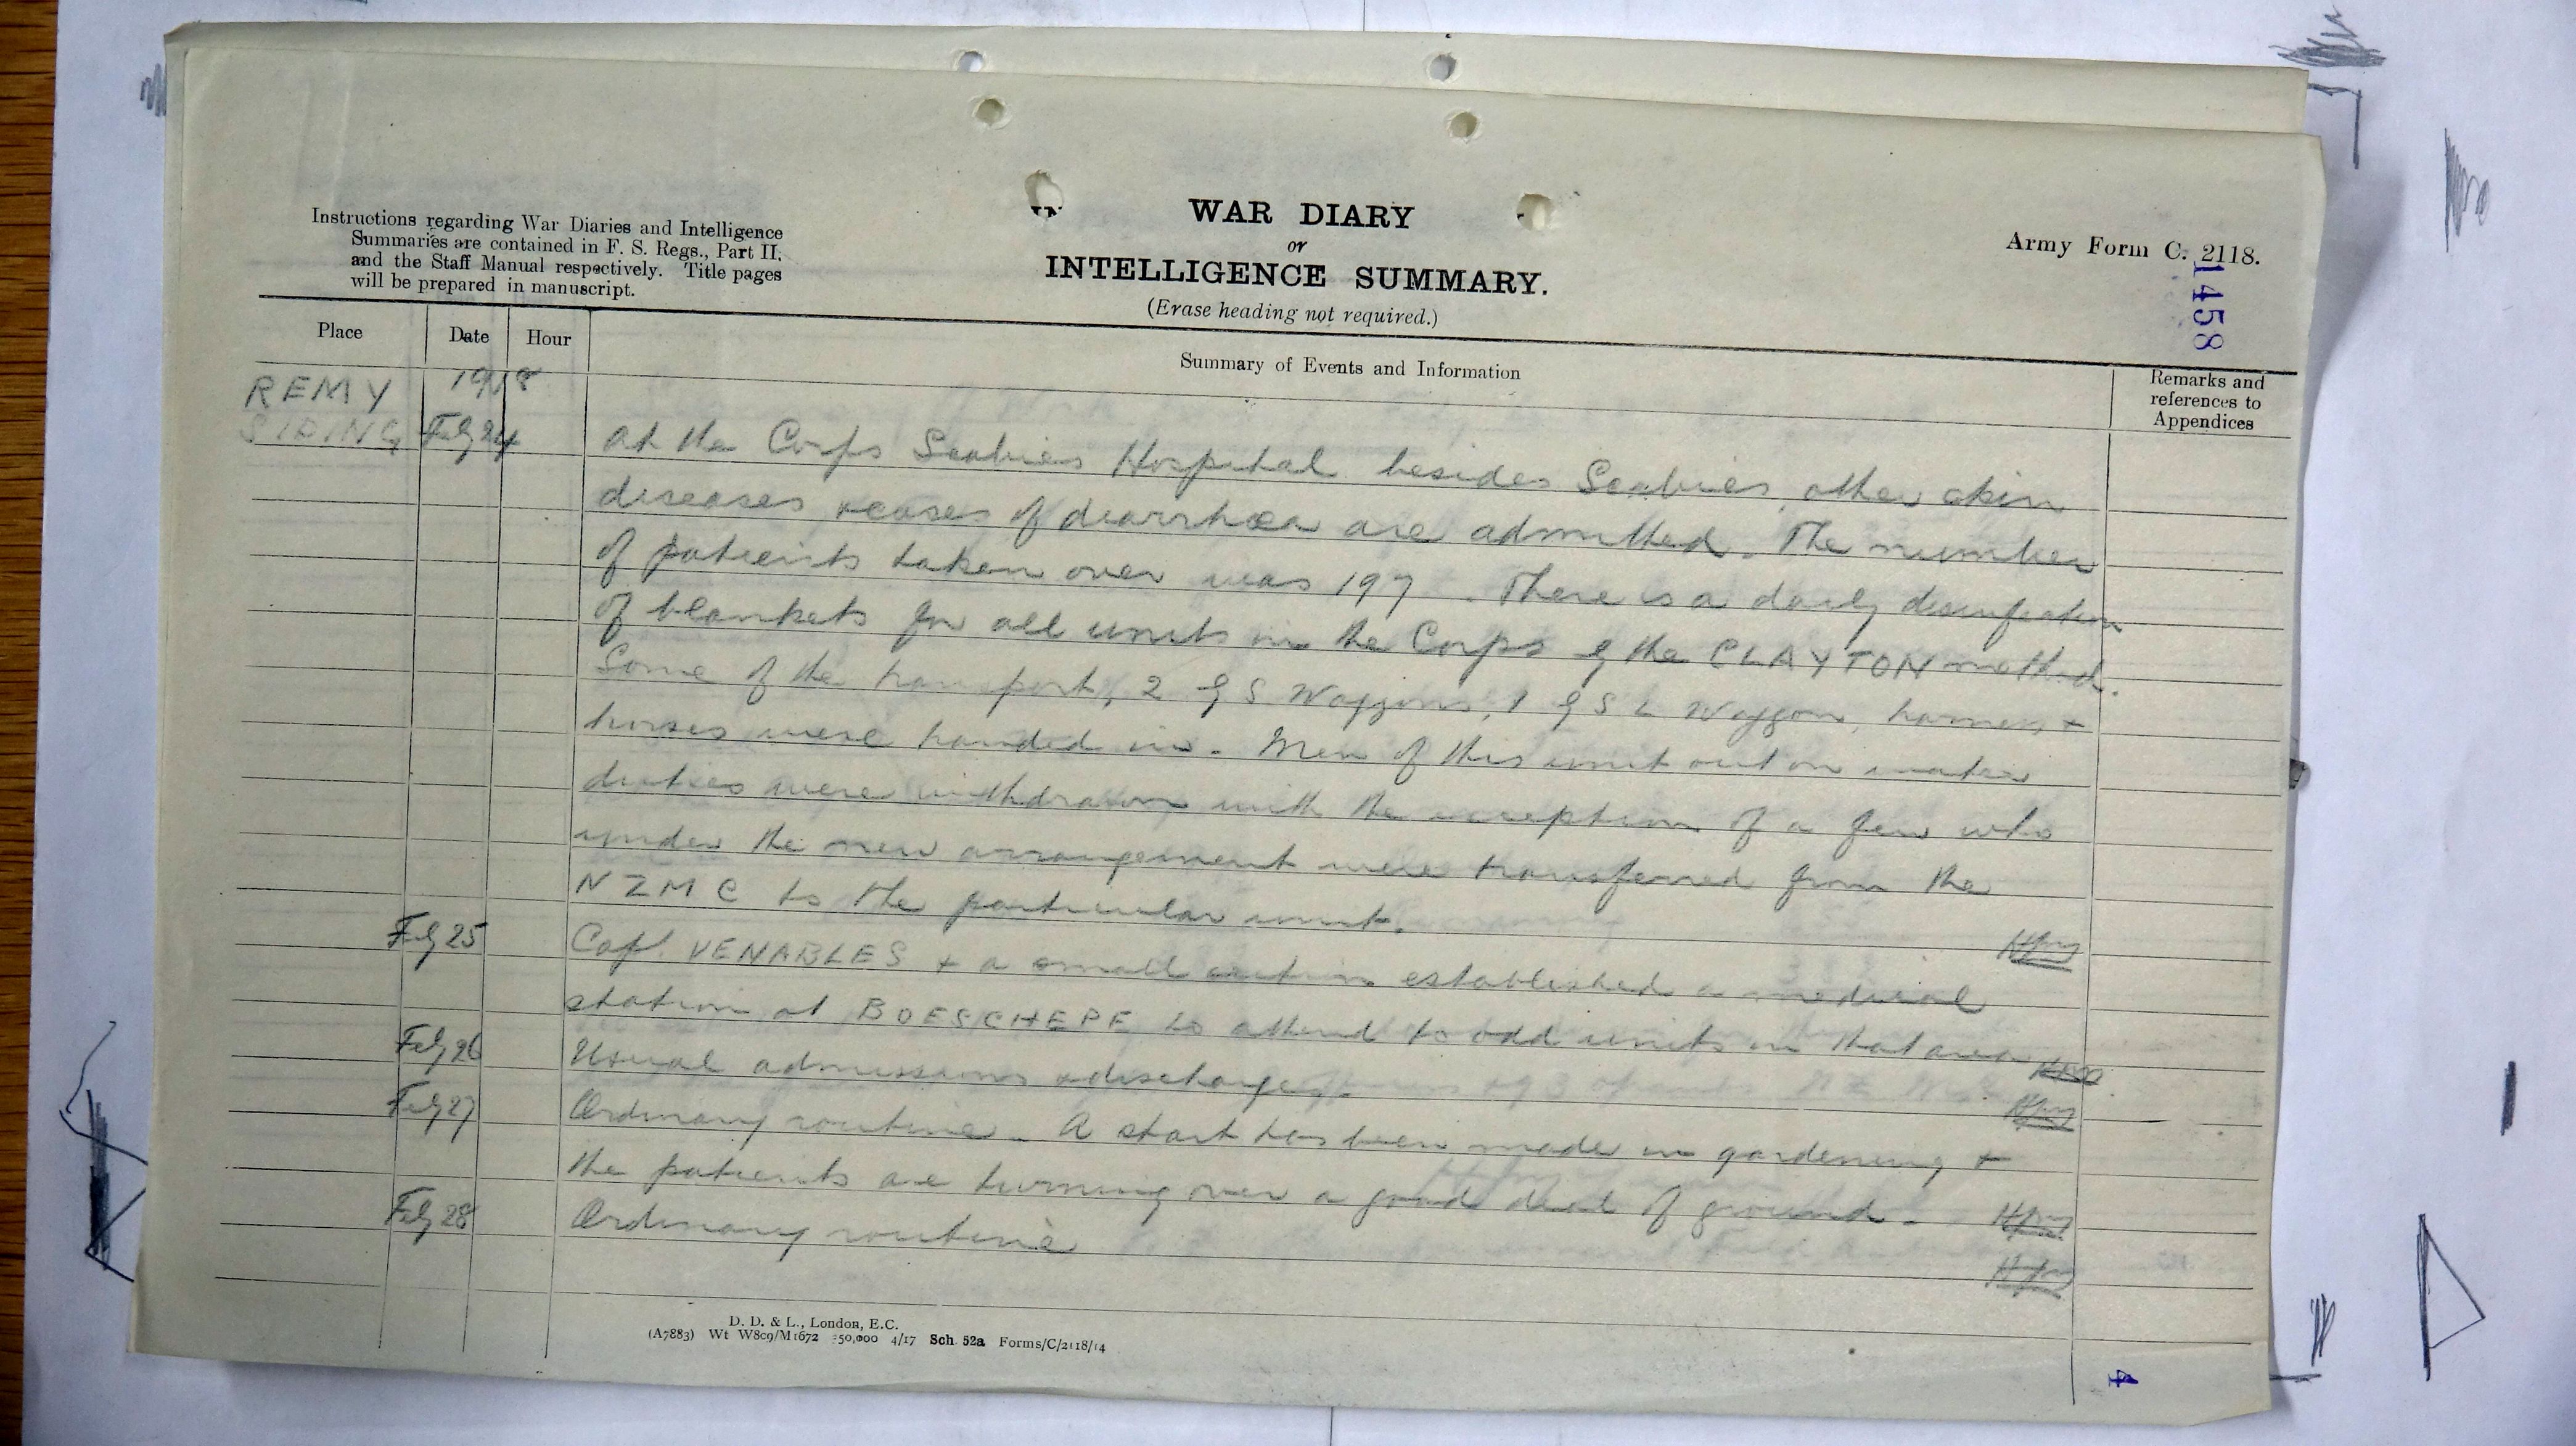 WAR DIARY
or
INTELLIGENCE SUMMARY.
(Erase heading not required.)
Instructions regarding War Diaries and Intelligence
Summaries are contained in F. S. Regs., Part II,
and the Staff Manual respectively. Title pages
will be prepared in manuscript.
Army Form C. 2118.
1458
Place Date Hour Summary of Events and Information Remarks and references to Appendices
REMY 1918
SIDING Feby 24 At the Corps Scabies Hospital besides Scabies, other skin
diseases & cases of diarrhœa are admitted. The number
of patients taken over was 197. There is a daily disinfection
of blankets for all units in the Corps by the CLAYTON method.
Some of the transport, 2 G S Waggons, 1 G S L Waggon, harness &
horses were handed in. Men of this unit out on water
duties were withdrawn with the exception of a few who
under the new arrangement were transferred from the
NZMC to the particular unit.
Feby 25 Capt. VENABLES & a small section established a medical
station at BOESCHEPE to attend to odd units in that area
Feby 26 Usual admissions & discharges.
Feby 27 Ordinary routine. A start has been made in gardening &
the patients are turning over a good deal of ground.
Feby 28 Ordinary routine
D. D. & L., London, E.C.
(A7883) Wt W809/M1672 350,000 4/17 Sch. 52a Forms/C/2118/14
4